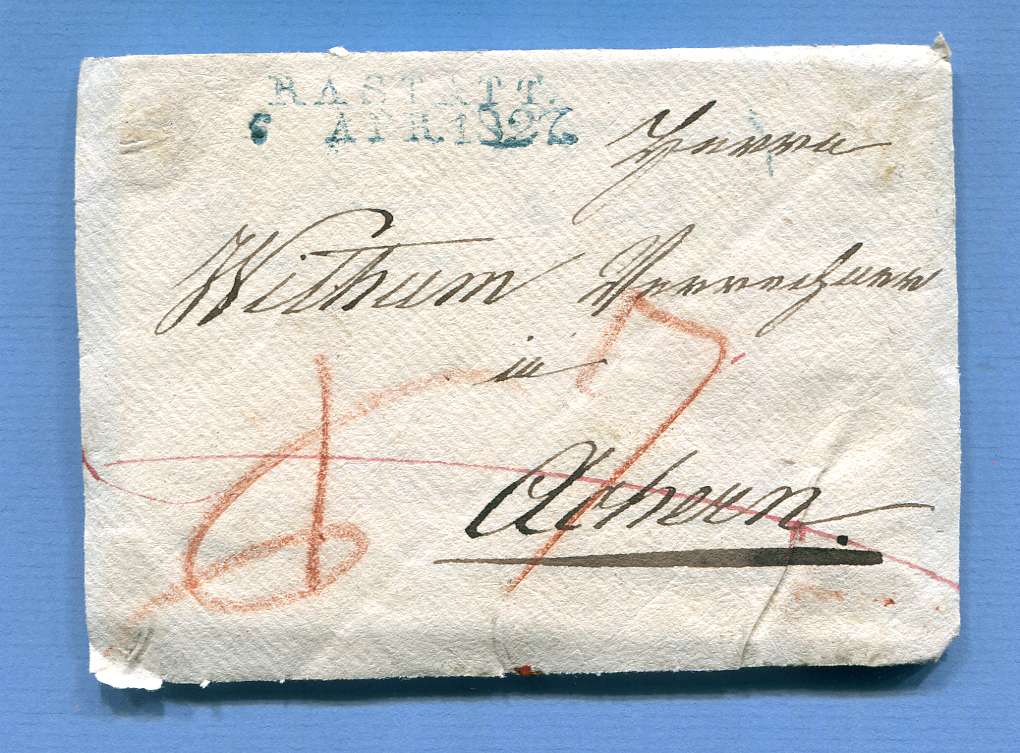 RASTATT.
6 APR 1827
Herrn
Withum Verrechner
in
Achern.